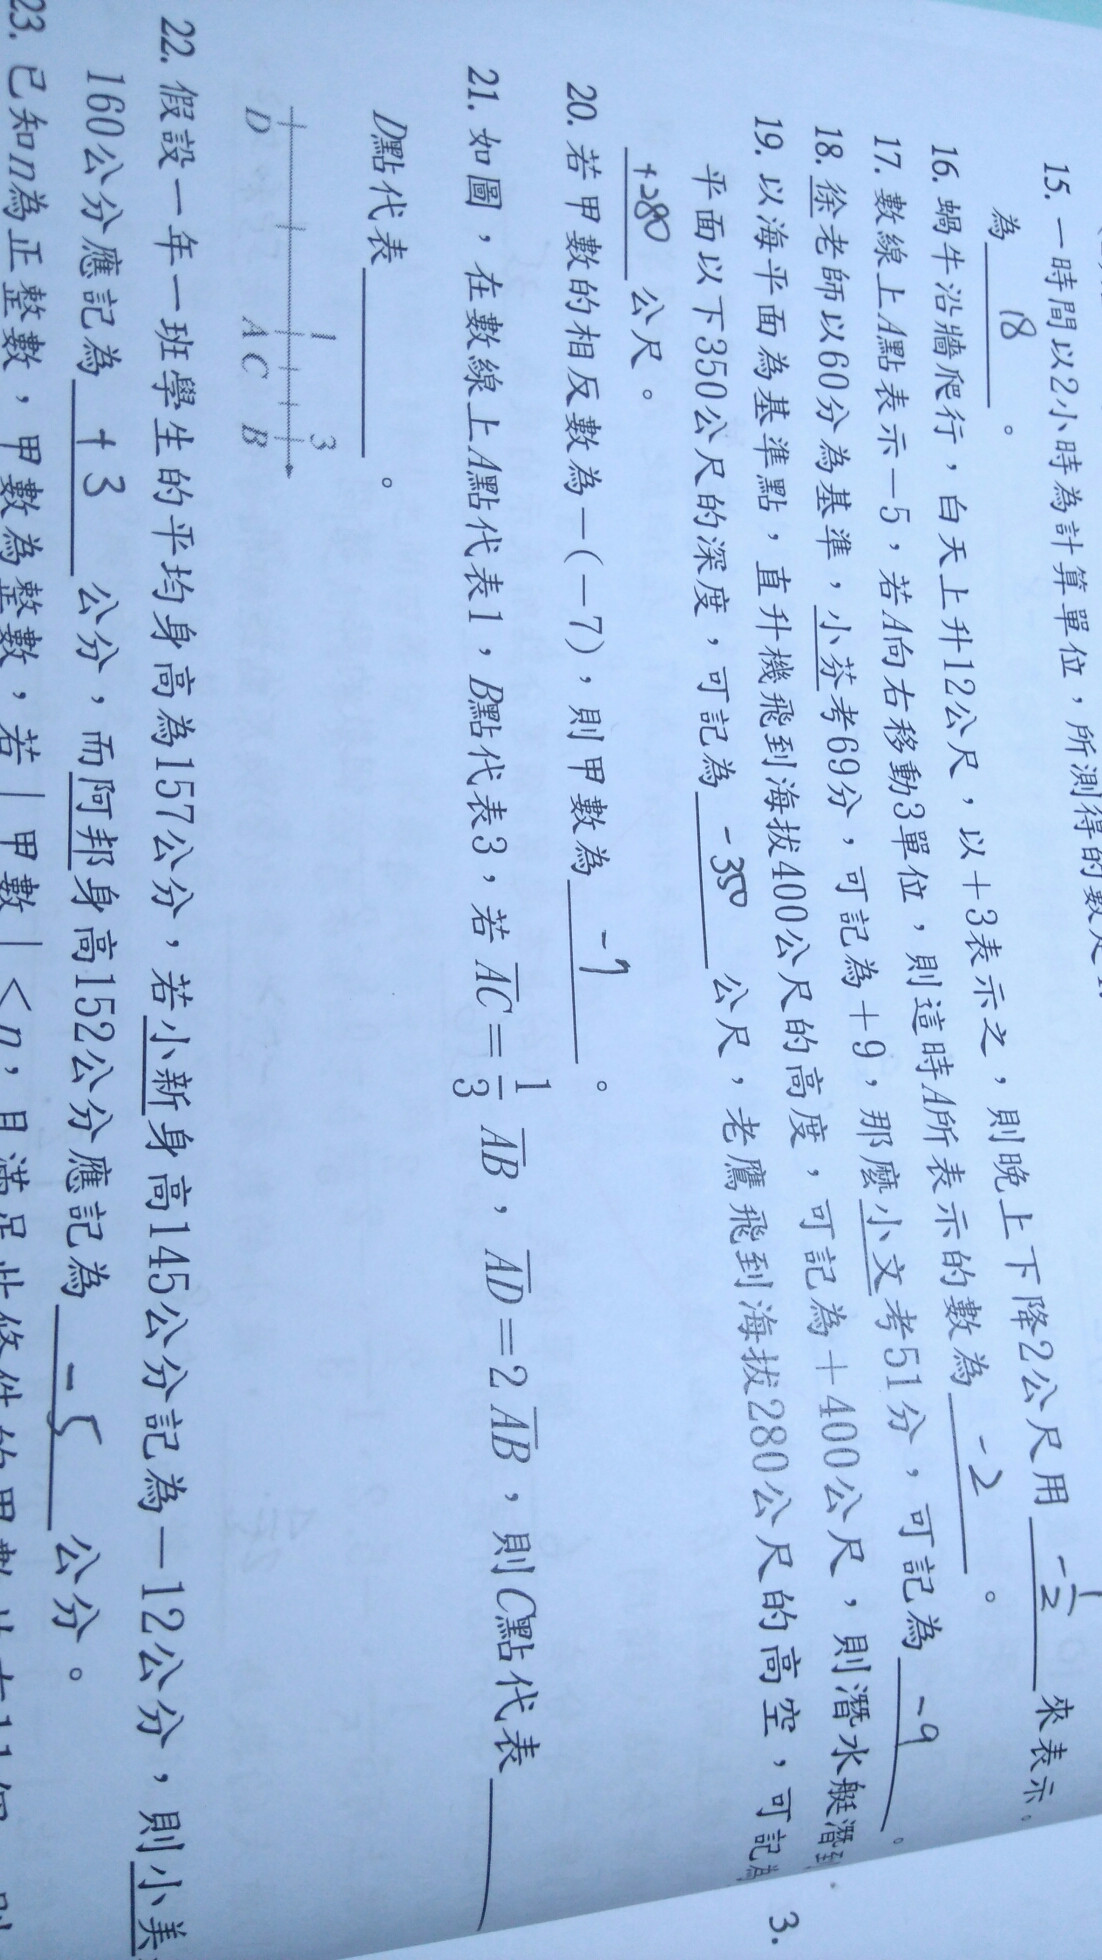 15. 一時間以2小時為計算單位，所測得的數
為 18 。
16. 蝸牛沿牆爬行，白天上升12公尺，以＋3表示之，則晚上下降2公尺用 -1/2 來表示。
17. 數線上A點表示－5，若A向右移動3單位，則這時A所表示的數為 -2 。
18. 徐老師以60分為基準，小芬考69分，可記為＋9，那麼小文考51分，可記為 -9 。
19. 以海平面為基準點，直升機飛到海拔400公尺的高度，可記為＋400公尺，則潛水艇潛到
平面以下350公尺的深度，可記為 -350 公尺，老鷹飛到海拔280公尺的高空，可記為
+280 公尺。
20. 若甲數的相反數為－(－7)，則甲數為 -7 。
21. 如圖，在數線上A點代表1，B點代表3，若 AC＝1/3 AB，AD＝2 AB，則C點代表
D點代表 。
1 3
D A C B
22. 假設一年一班學生的平均身高為157公分，若小新身高145公分記為－12公分，則小美
160公分應記為 +3 公分，而阿邦身高152公分應記為 -5 公分。
23. 已知n為正整數，甲數為整數，若｜甲數｜＜n，且滿足此條件的甲數共有11個
3.